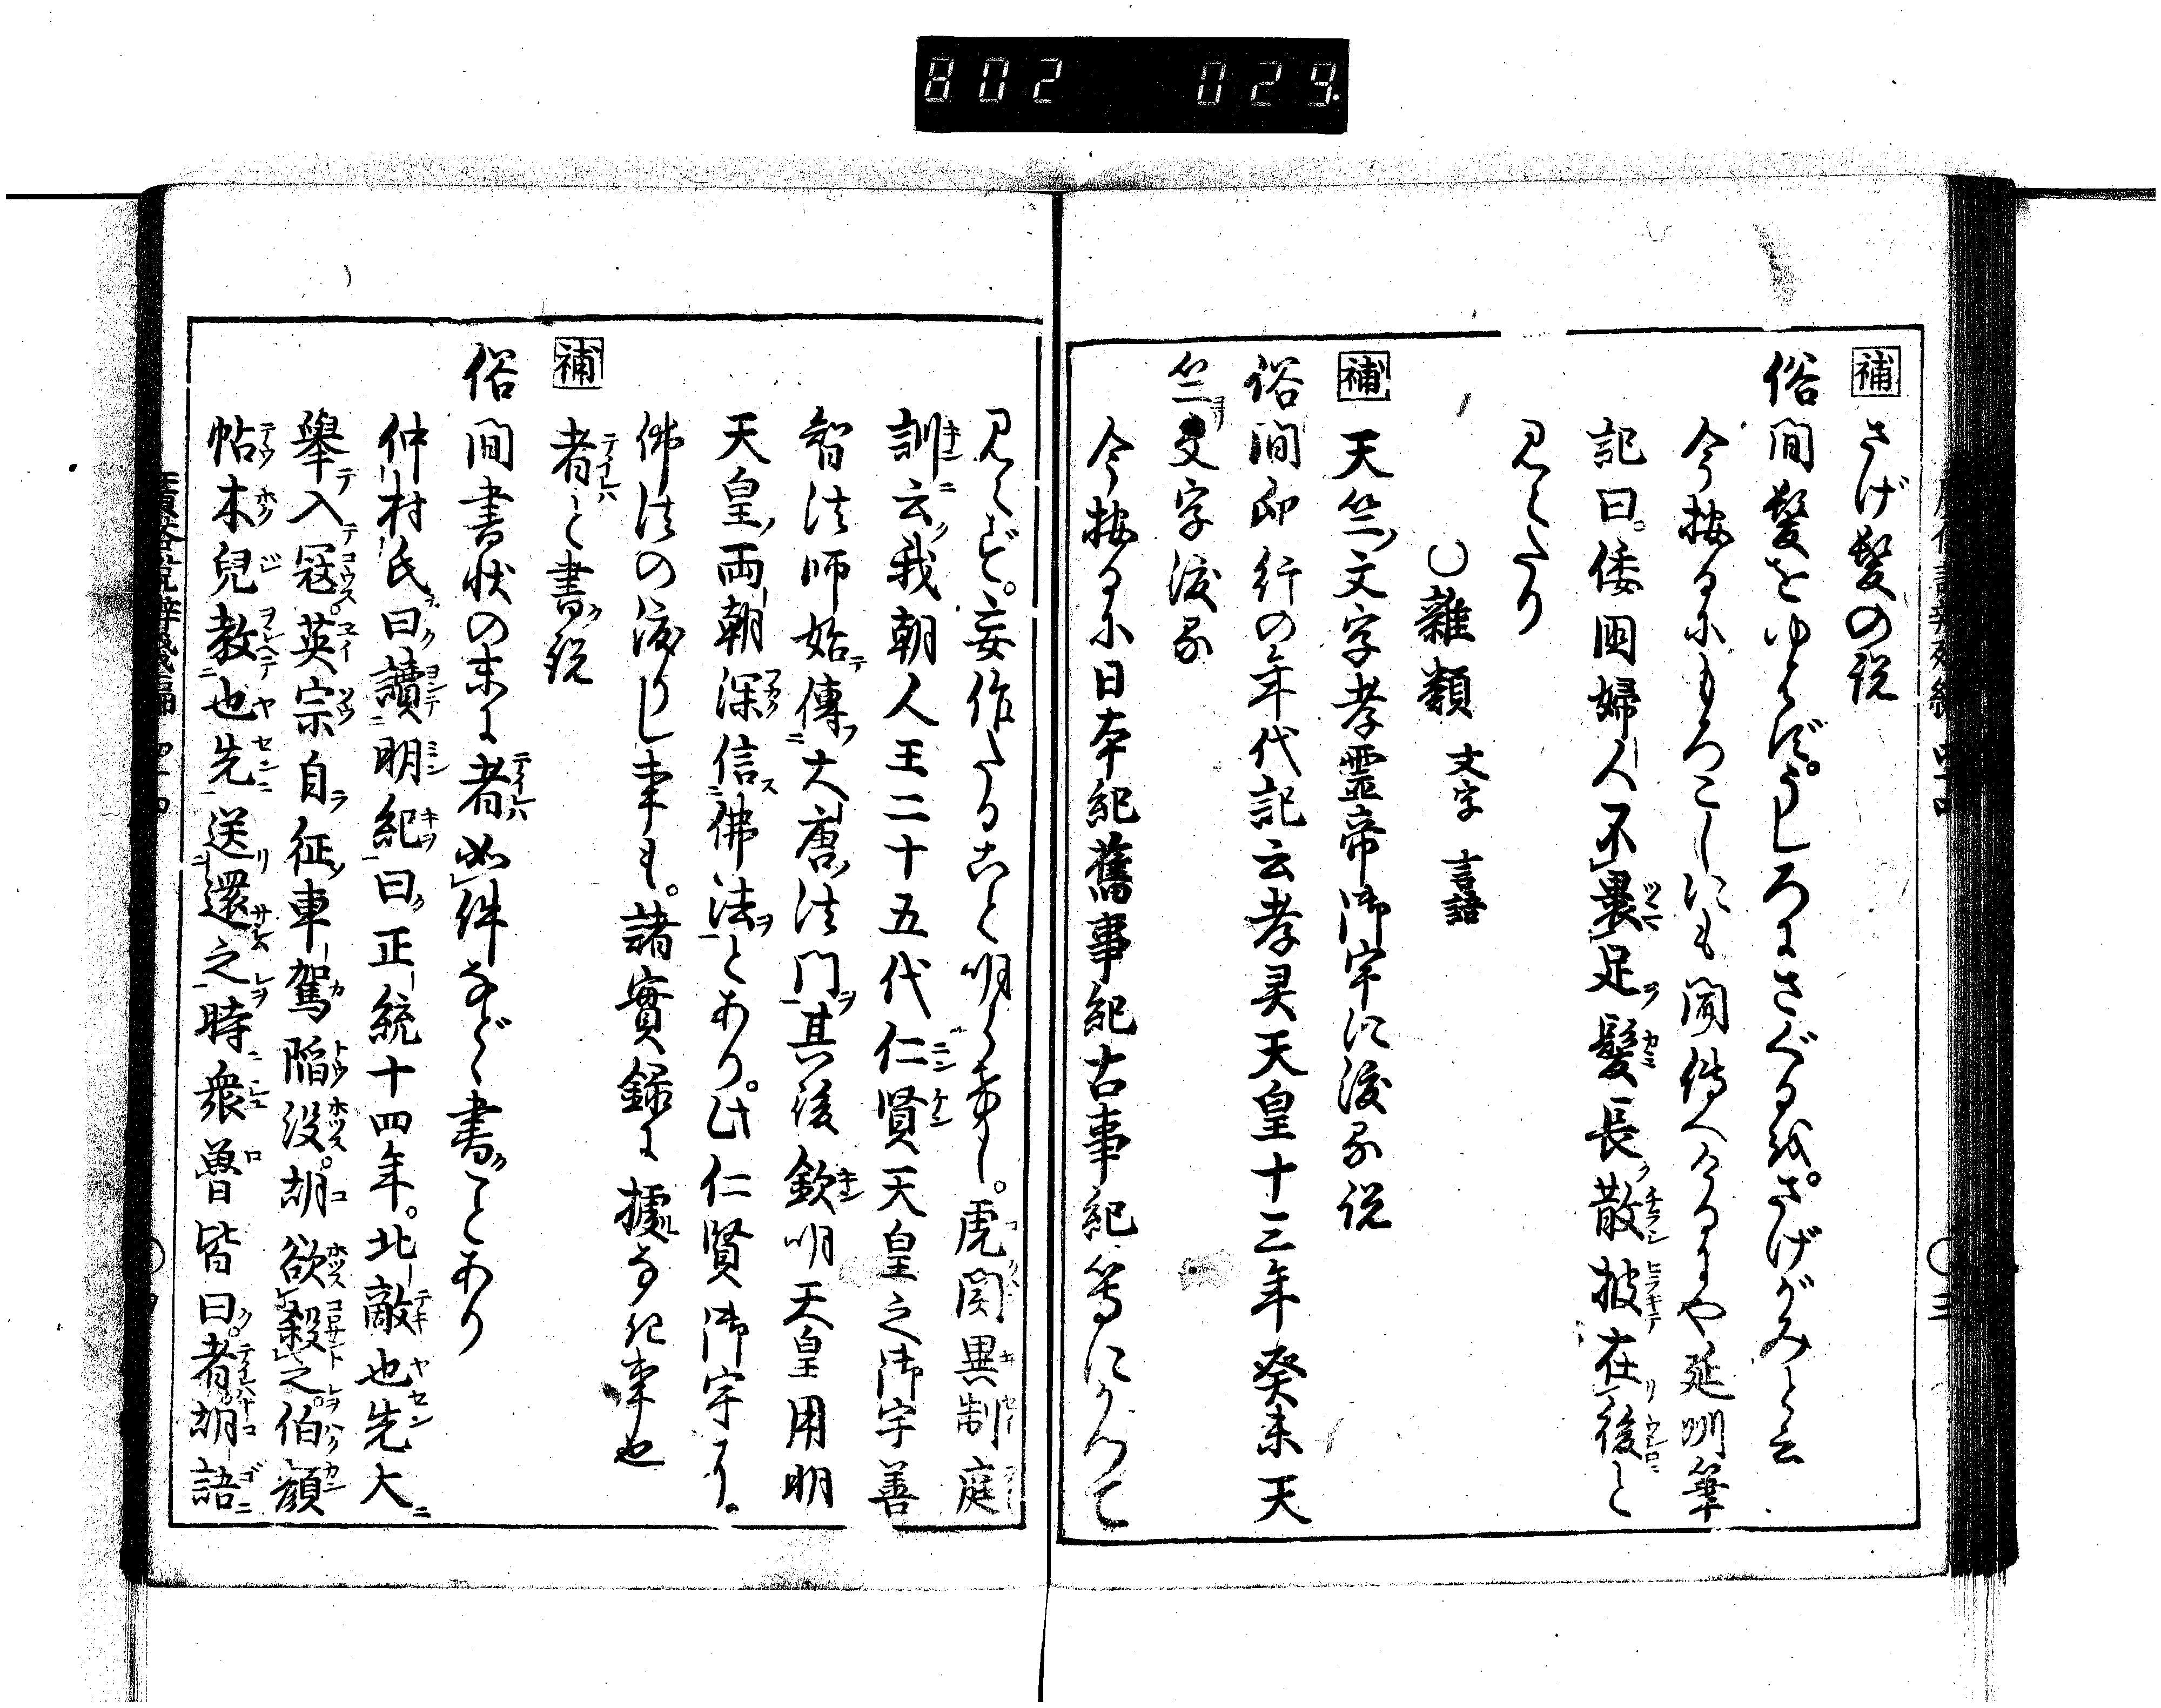 802 029
補 さげ髪の説
俗間髪をゆはず。うしろにさぐるを。さげがみと云
今按るにもろこしにも聞傳へけるにや延州筆
記曰。倭国婦人不裹足髪長散披在後と
見えたり
○雑類 文字 言語
補 天竺文字孝霊帝御宇に渡る説
俗間印行の年代記云孝灵天皇十三年癸未天
竺文字渡る
今按るに日本紀舊事紀古事紀等にかつて
見えず。妄作たること明らけし。虎関異制庭
訓云我朝人王二十五代仁賢天皇之御宇善
智法師始傳大唐法門其後欽明天皇用明
天皇両朝深信佛法とあり。此仁賢御宇に。
佛法の渡りし事も。諸實録に據なき事也
補 者と書説
俗間書状の末に者如件などゝ書ことあり
仲村氏曰讀明紀曰正統十四年。北敵也先大
擧入寇。英宗自征車駕陥没。胡欲殺之。伯顔
帖木兒教也先送還之時衆酋皆曰。者胡語